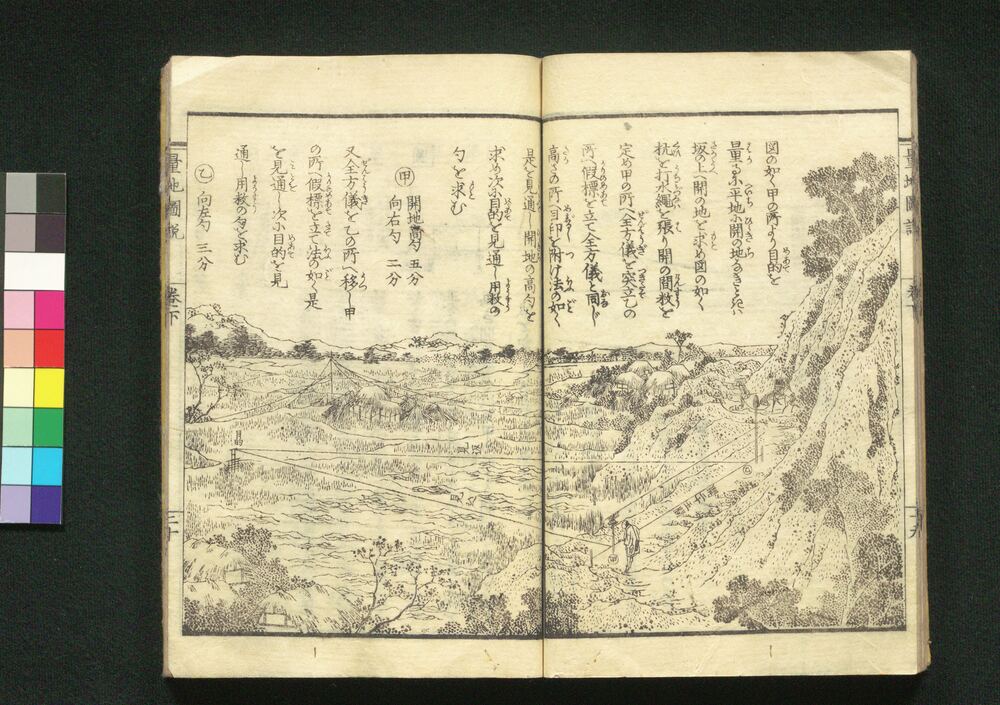 図の如く甲の所より目的を
量るに平地に開の地なきときは
坂の上へ開の地を求め図の如く
杭を打水縄を張り開の間数を
定め甲の所へ全方儀を突立乙の
所へ假標を立て全方儀と同じ
高さの所へ目印を附け法の如く
是を見通し開地の高勾を
求め次に目的を見通し用数の
勾を求む
甲 開地高勾 五分
向右勾 二分
又全方儀を乙の所へ移し甲
の所へ假標を立て法の如く是
を見通し次に目的を見
通し用数の勾を求む
乙 向左勾 三分
量地圖説
巻下